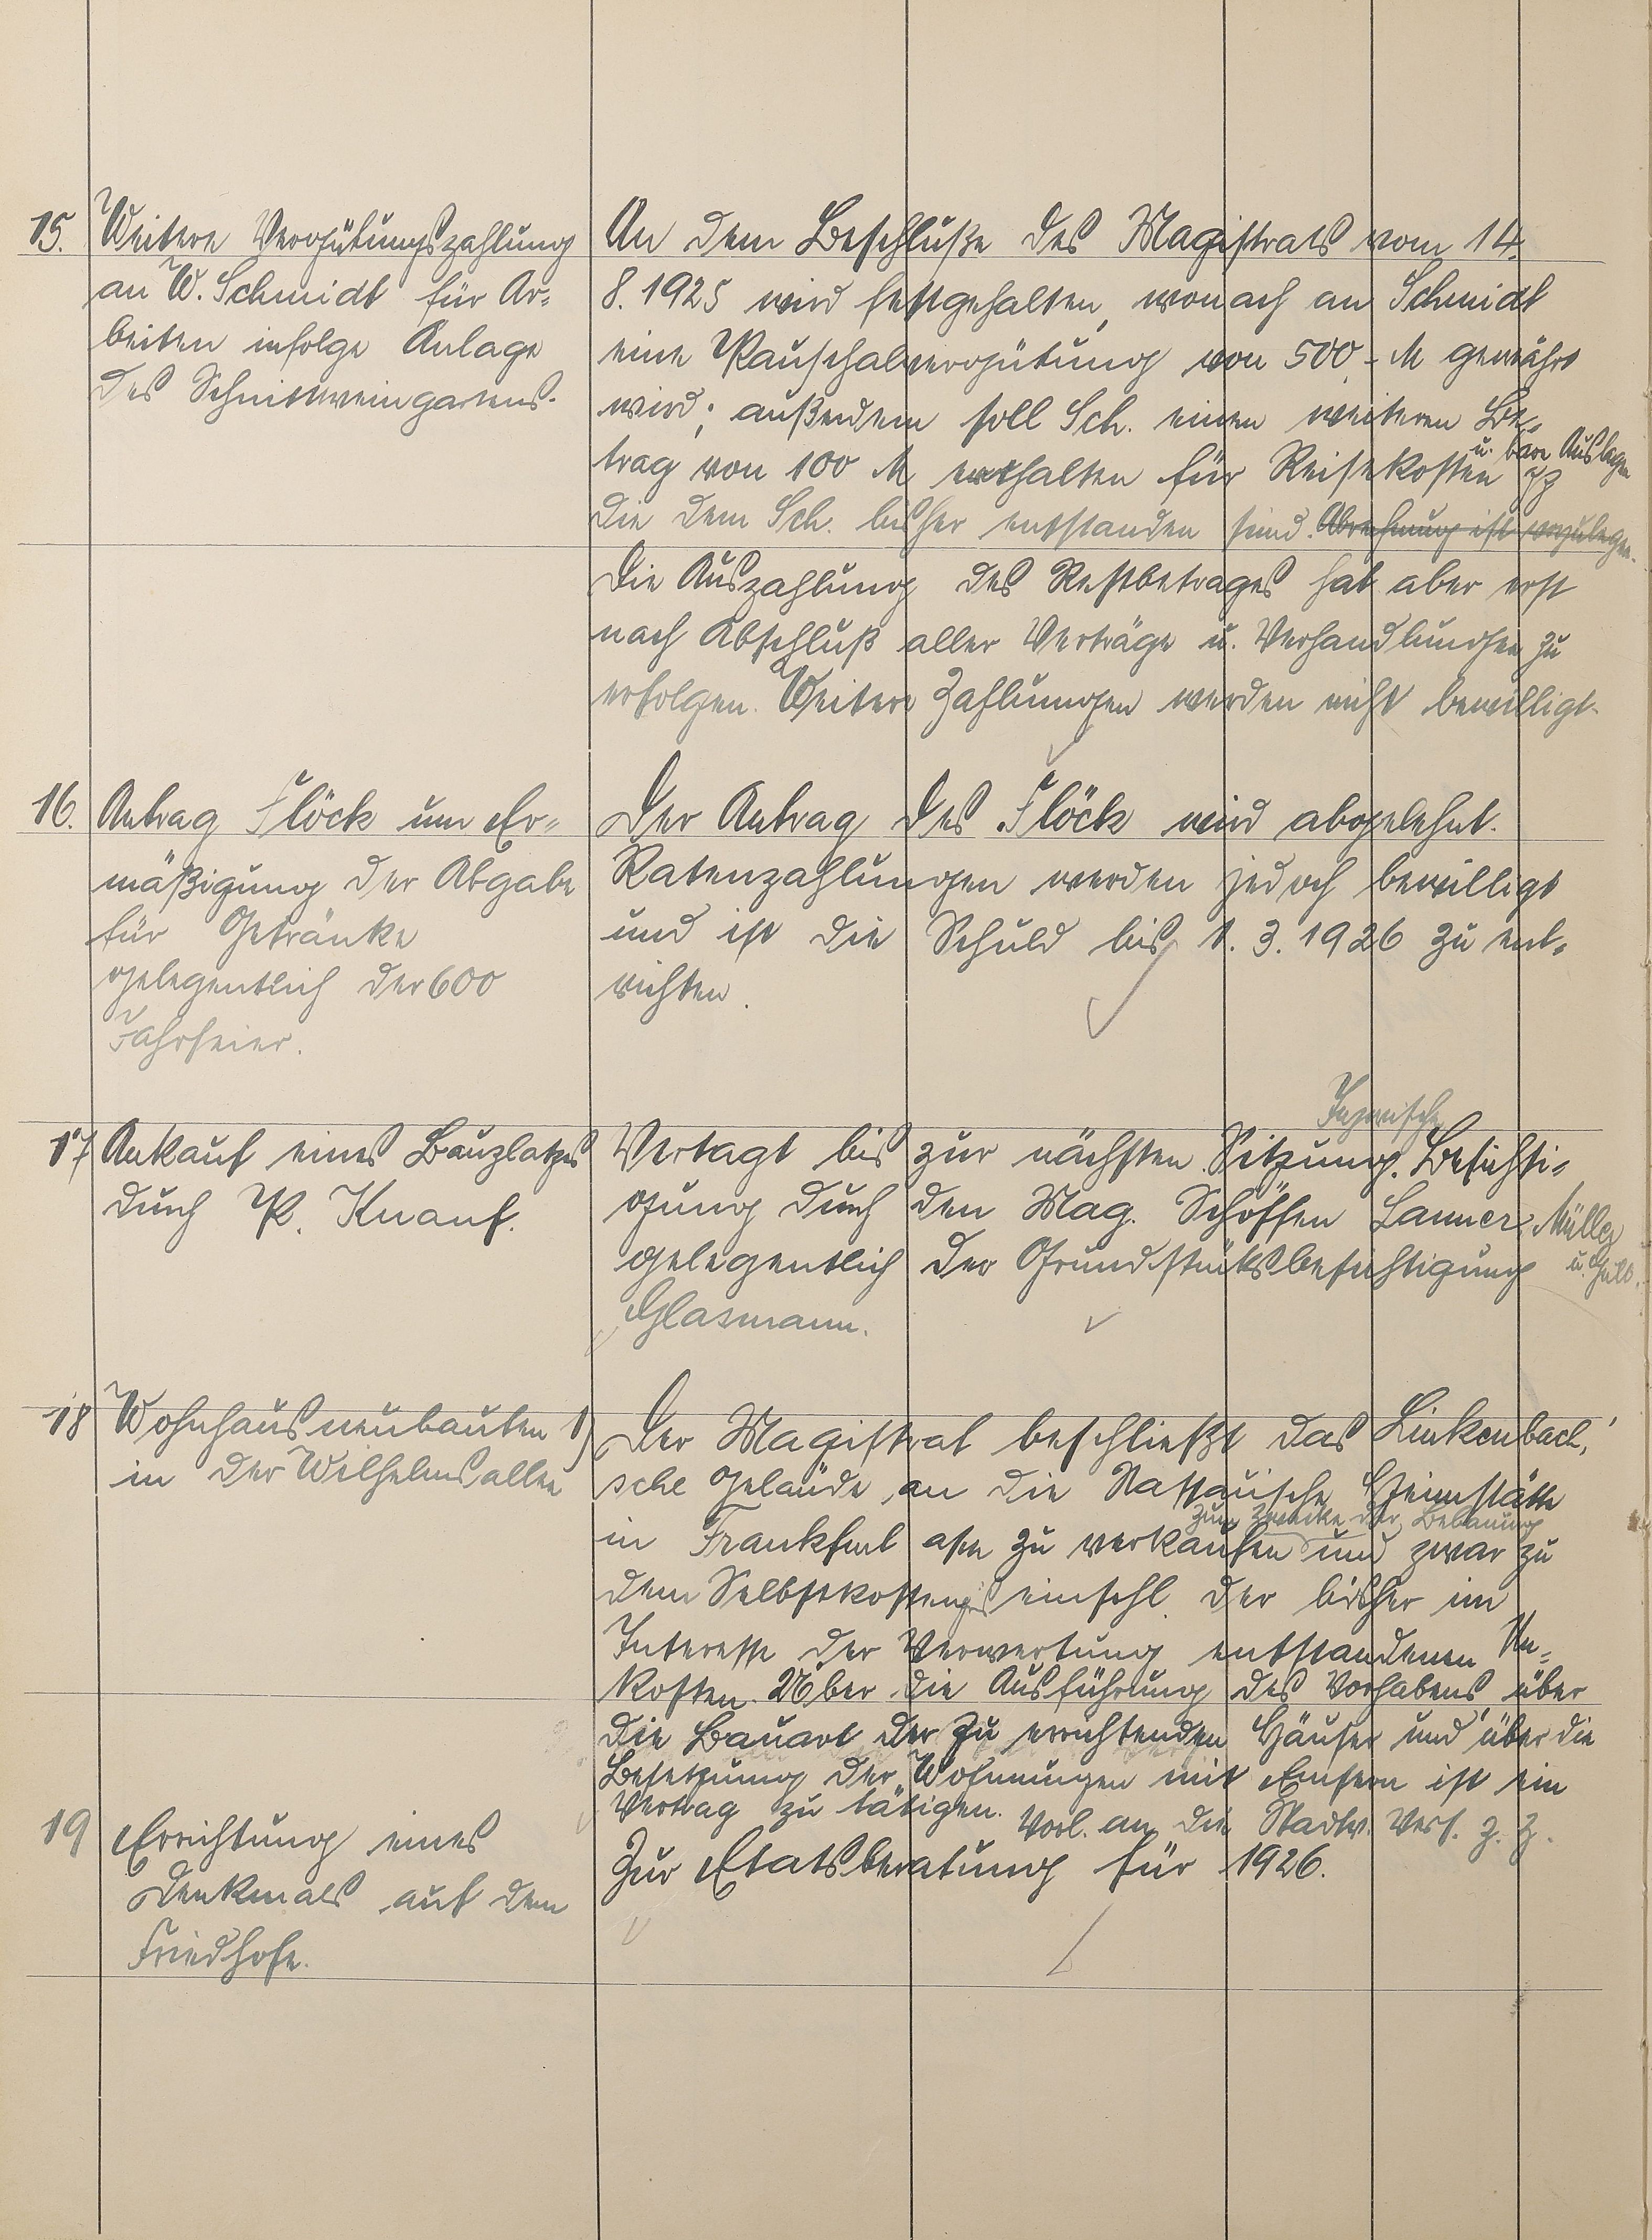 15. Weitere Vergütungszahlung
an W. Schmidt für Ar-
beiten infolge Anlage
des Schnittweingartens.
An dem Beschluße des Magistrats vom 14.
8. 1925 wird festgehalten, wonach an Schmidt
eine Pauschalvergütung von 500,- M gewährt
wird; außerdem soll Sch. einen weiteren Be-
trag von 100 M erhalten für Reisekosten u. bare Auslagen pp
die dem Sch. bisher entstanden sind. Abrechnung ist vorzulegen.
Die Auszahlung des Restbetrages hat aber erst
nach Abschluß aller Verträge u. Verhandlungen zu
erfolgen. Weitere Zahlungen werden nicht bewilligt.
16. Antrag Flöck um Er-
mäßigung der Abgabe
für Getränke
gelegentlich der 600
Jahrfeier.
Der Antrag des Flöck wird abgelehnt.
Ratenzahlungen werden jedoch bewilligt
und ist die Schuld bis 1. 3. 1926 zu ent-
richten.
17 Ankauf eines Bauplatzes
durch P. Knauf.
Inzwische
Vertagt bis zur nächsten Sitzung. Besichti-
gung durch den Mag. Schöffen Lanner, Müller
gelegentlich der Grundstücksbesichtigung u.
Glasmann.
18 Wohnhausneubauten
in der Wilhelmsallee
1) Der Magistrat beschließt das Linkenbach'
sche Gelände an die Nassauische Heimstätte
zum Zwecke der Bebauung
in Frankfurt a/M zu verkaufen und zwar zu
dem Selbstkostenpreis einschl. der bisher im
Interesse der Verwertung entstandenen Un-
kosten. Über die Ausführung des Vorhabens, über
die Bauart der zu errichtenden Häuser und über die
Besetzung der Wohnungen mit Emsern ist ein
Vertrag zu tätigen. Vorl. an die Stadtv. Vers. z. Z.
19 Errichtung eines
Denkmals auf dem
Friedhofe.
Zur Etatsberatung für 1926.